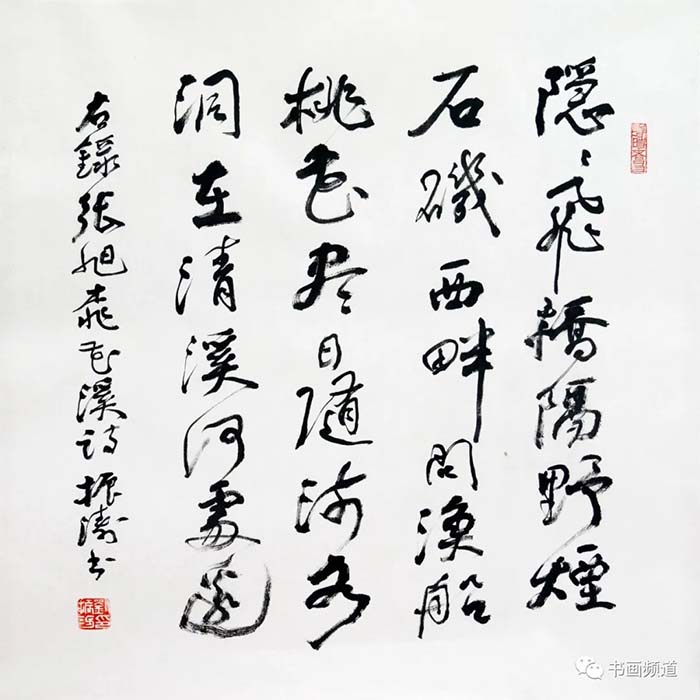 隐〻飛橋隔野煙
石磯西畔問漁船
桃花尽日随流水
洞在清溪何處邊
右錄張旭桃花溪詩 振濤书
书画频道